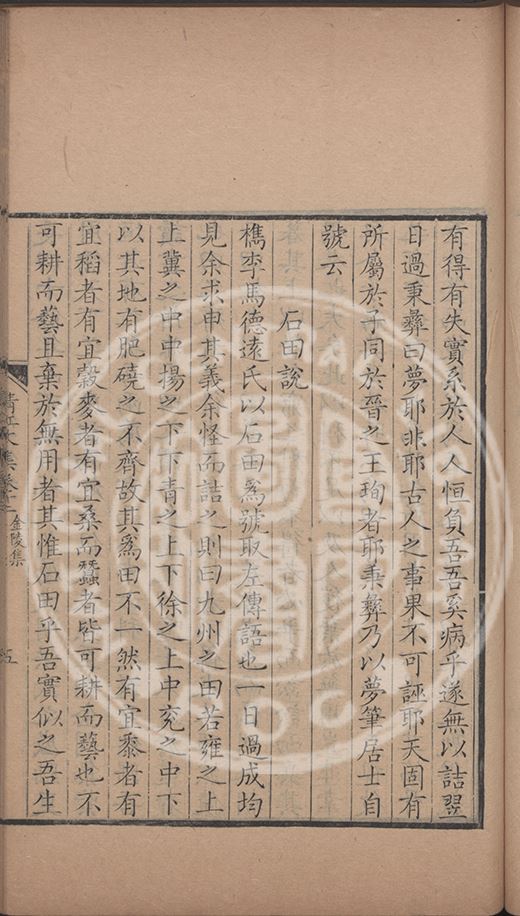 有得有失實系於人人恒負吾吾奚病乎遂無以詰翌
日過秉彝曰夢耶非耶古人之事果不可誣耶天固有
所屬於子同於晉之王珣者耶秉彝乃以夢筆居士自
號云
石田說
檇李馬德遠氏以石田爲號取左傳語也一日過成均
見余求申其義余怪而詰之則曰九州之田若雍之上
上冀之中中揚之下下青之上下徐之上中兖之中下
以其地有肥磽之不齊故其爲田不一然有宜黍者有
宜稻者有宜穀麥者有宜桑而蠶者皆可耕而藝也不
可耕而藝且棄於無用者其惟石田乎吾實似之吾生
金陵集